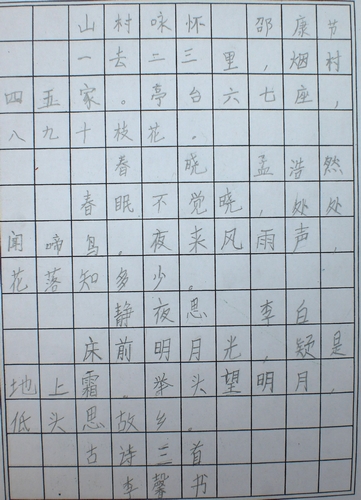 山村咏怀 邵康节
一去二三里，烟村
四五家。亭台六七座，
八九十枝花。
春晓 孟浩然
春眠不觉晓，处处
闻啼鸟。夜来风雨声，
花落知多少。
静夜思 李白
床前明月光，疑是
地上霜。举头望明月，
低头思故乡。
古诗三首
李馨书